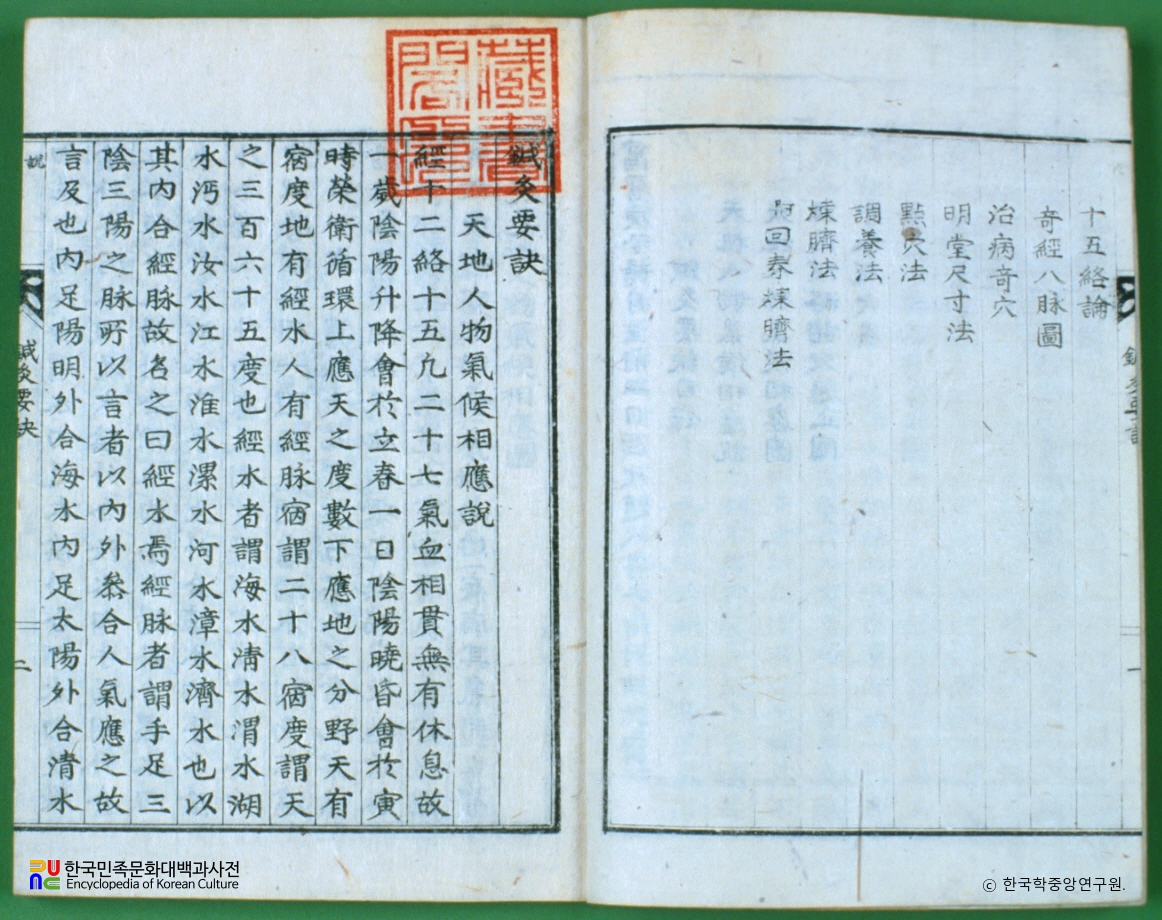 十五絡論
奇經八脉圖
治病奇穴
明堂尺寸法
點穴法
調養法
煉臍法
回春煉臍法
一
藏書閣印
鍼灸要訣
天地人物氣候相應說
經十二絡十五凢二十七氣血相貫無有休息故
一歲陰陽升降會於立春一日陰陽曉昏會於寅
時榮衛循環上應天之度數下應地之分野天有
宿度地有經水人有經脉宿謂二十八宿度謂天
之三百六十五度也經水者謂海水淸水渭水湖
水沔水汝水江水淮水漯水河水漳水濟水也以
其內合經脉故名之曰經水焉經脉者謂手足三
陰三陽之脉所以言者以內外叅合人氣應之故
言及也內足陽明外合海水內足太陽外合淸水
說
鍼灸要訣
二
한국민족문화대백과사전
Encyclopedia of Korean Culture
ⓒ 한국학중앙연구원.